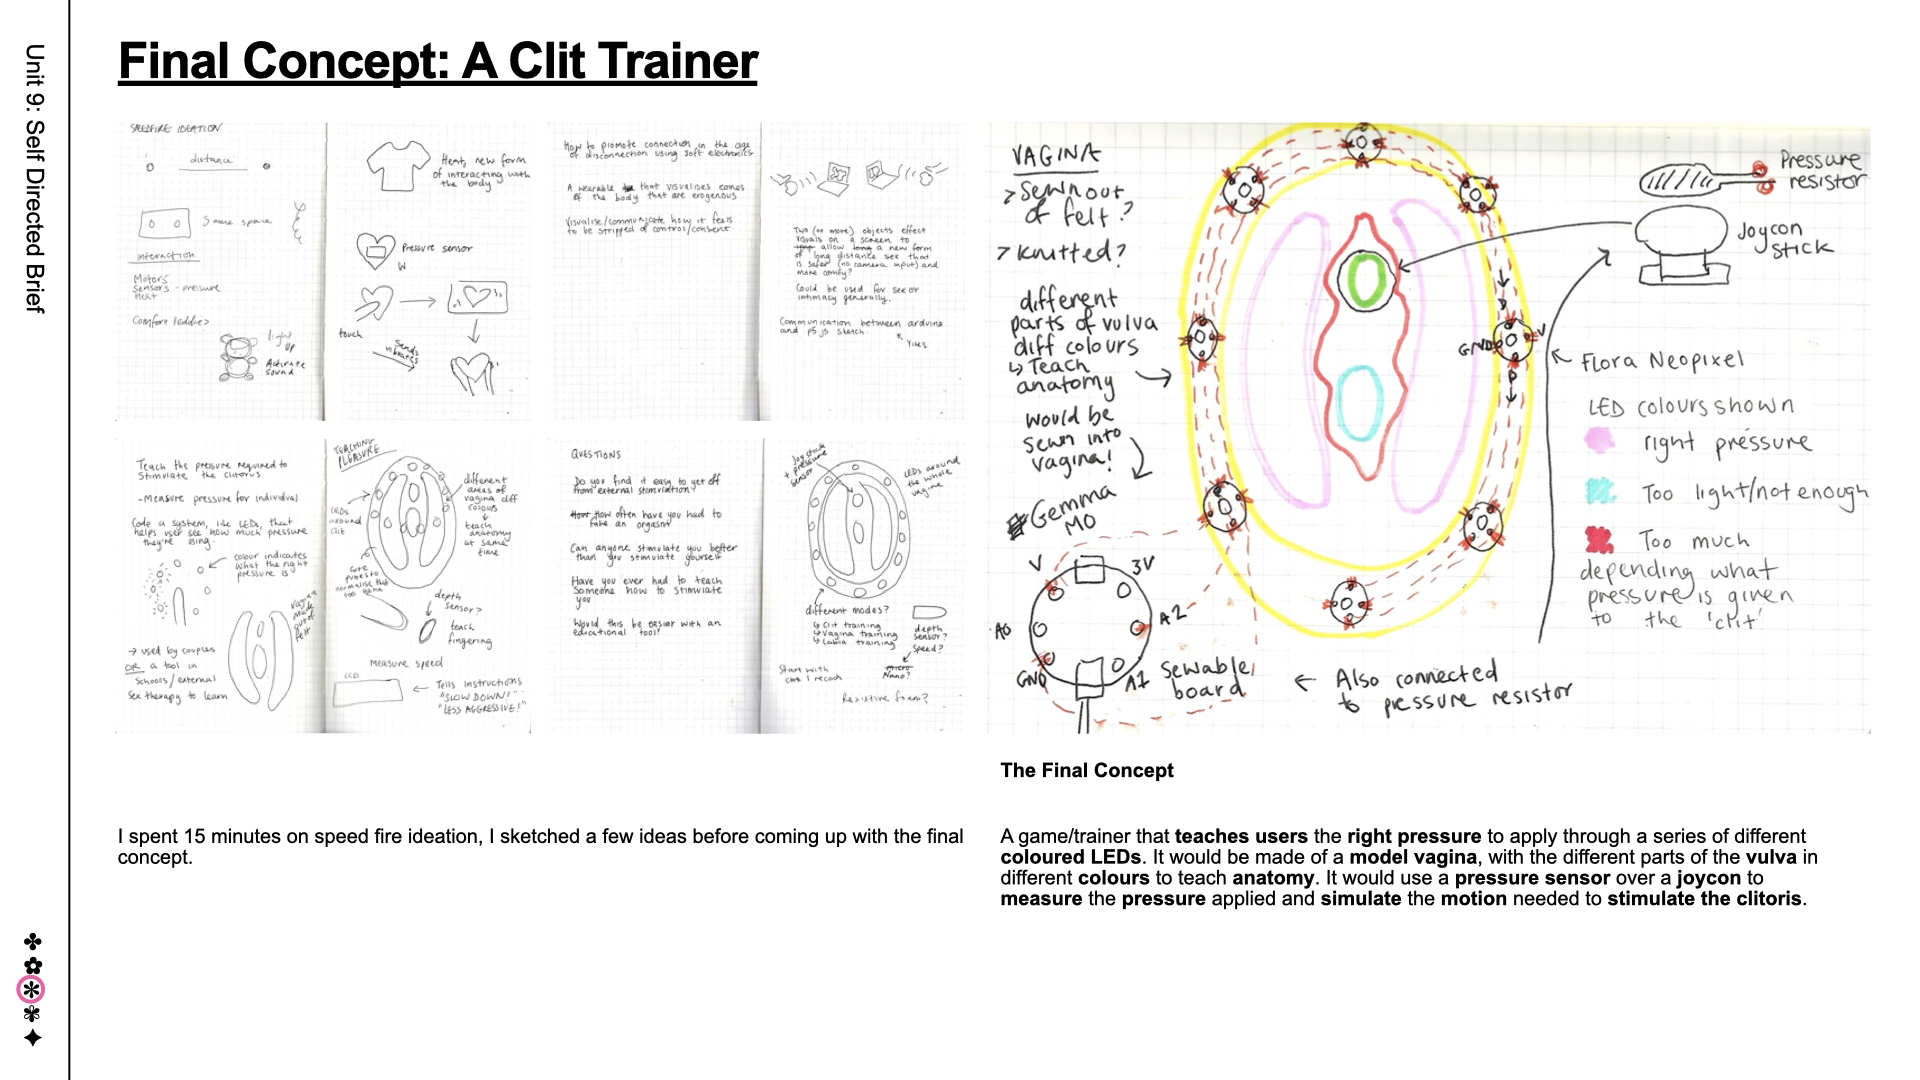 Unit 9: Self Directed Brief
Final Concept: A Clit Trainer
SPEEDFIRE IDEATION
distance
Smare space
interaction
Motors
Sensors - pressure
Heat
Comfort teddies
light
up
Activate
sound
Heat, new form
of interacting with
the body
Pressure sensor
touch
Sends
vibrates
How to promote connection in the age
of disconnection using soft electronics
A wearable that visualises zones
of the body that are erogenous
Visualise/communicate how it feels
to be stripped of control/consent.
Two (or more) objects effect
visuals on a screen to
allow a new form
of long distance sex that
is safer (no camera input) and
more comfy?
Could be used for sex or
intimacy generally.
Communication between arduino
and p5.js sketch.
Yikes
Teach the pressure required to
stimulate the clitorus
- Measure pressure for individual
Code a system, like LEDs, that
helps user see how much pressure
they're using.
colour indicates
what the right
pressure is
vagina
made
out of
felt
→ used by couples
OR a tool in
schools/external
sex therapy to learn
TEACHING
PLEASURE
LEDs
around
clit
different
areas of
vagina diff
colours
↓
teach
anatomy
at same
time
depth
sensor?
teach
fingering
Measure speed
LCD
← Tells instructions
"SLOW DOWN!"
"LESS AGGRESSIVE!"
QUESTIONS
Do you find it easy to get off
from external stimulation?
How often have you had to
fake an orgasm
Can anyone stimulate you better
than you stimulate yourself
Have you ever had to teach
someone how to stimulate
you
Would this be easier with an
educational tool?
Joy stick
+ pressure
sensor
LEDs around
the whole
vagine
different modes?
↳ Clit training
↳ Vagina training
↳ Labia training
depth
sensor?
speed?
Micro
Nano?
Start with
Resistive foam?
VAGINA
> Sewn out
of felt?
> Knitted?
different
parts of vulva
diff colours
↳ Teach
anatomy
would be
sewn into
vagina!
Gemma
M0
V
3V
A0
A2
GND
A1
Sewable
board
Pressure
resistor
Joycon
stick
V
GND
Flora Neopixel
LED colours shown
right pressure
Too light/not enough
Too much
depending what
pressure is given
to the 'clit'
← Also connected
to pressure resistor
The Final Concept
I spent 15 minutes on speed fire ideation, I sketched a few ideas before coming up with the final
concept.
A game/trainer that teaches users the right pressure to apply through a series of different
coloured LEDs. It would be made of a model vagina, with the different parts of the vulva in
different colours to teach anatomy. It would use a pressure sensor over a joycon to
measure the pressure applied and simulate the motion needed to stimulate the clitoris.